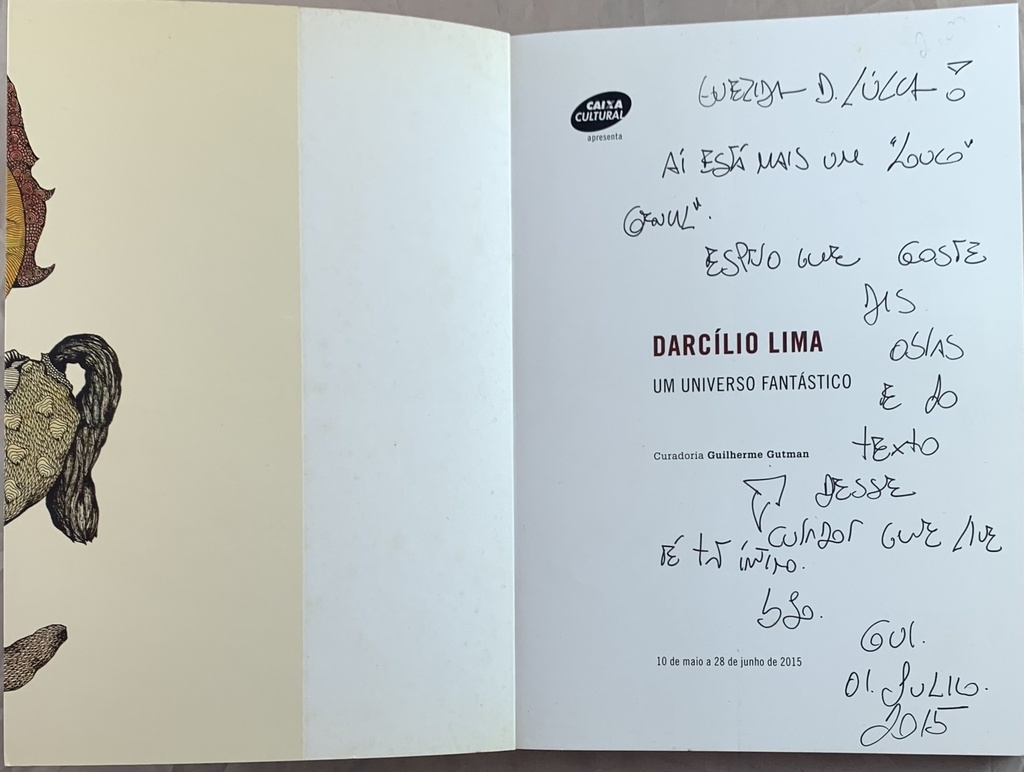 CAIXA
CULTURAL
apresenta
QUERIDA D. LÚCIA!
AÍ ESTÁ MAIS UM "LOUCO
GENIAL".
ESPERO QUE GOSTE
DAS
OBRAS
E DO
TEXTO
DESSE
CURADOR QUE LHE
É TÃO ÍNTIMO.
DARCÍLIO LIMA
UM UNIVERSO FANTÁSTICO
Curadoria Guilherme Gutman
BJO.
GUI.
10 de maio a 28 de junho de 2015
01. JULHO.
2015